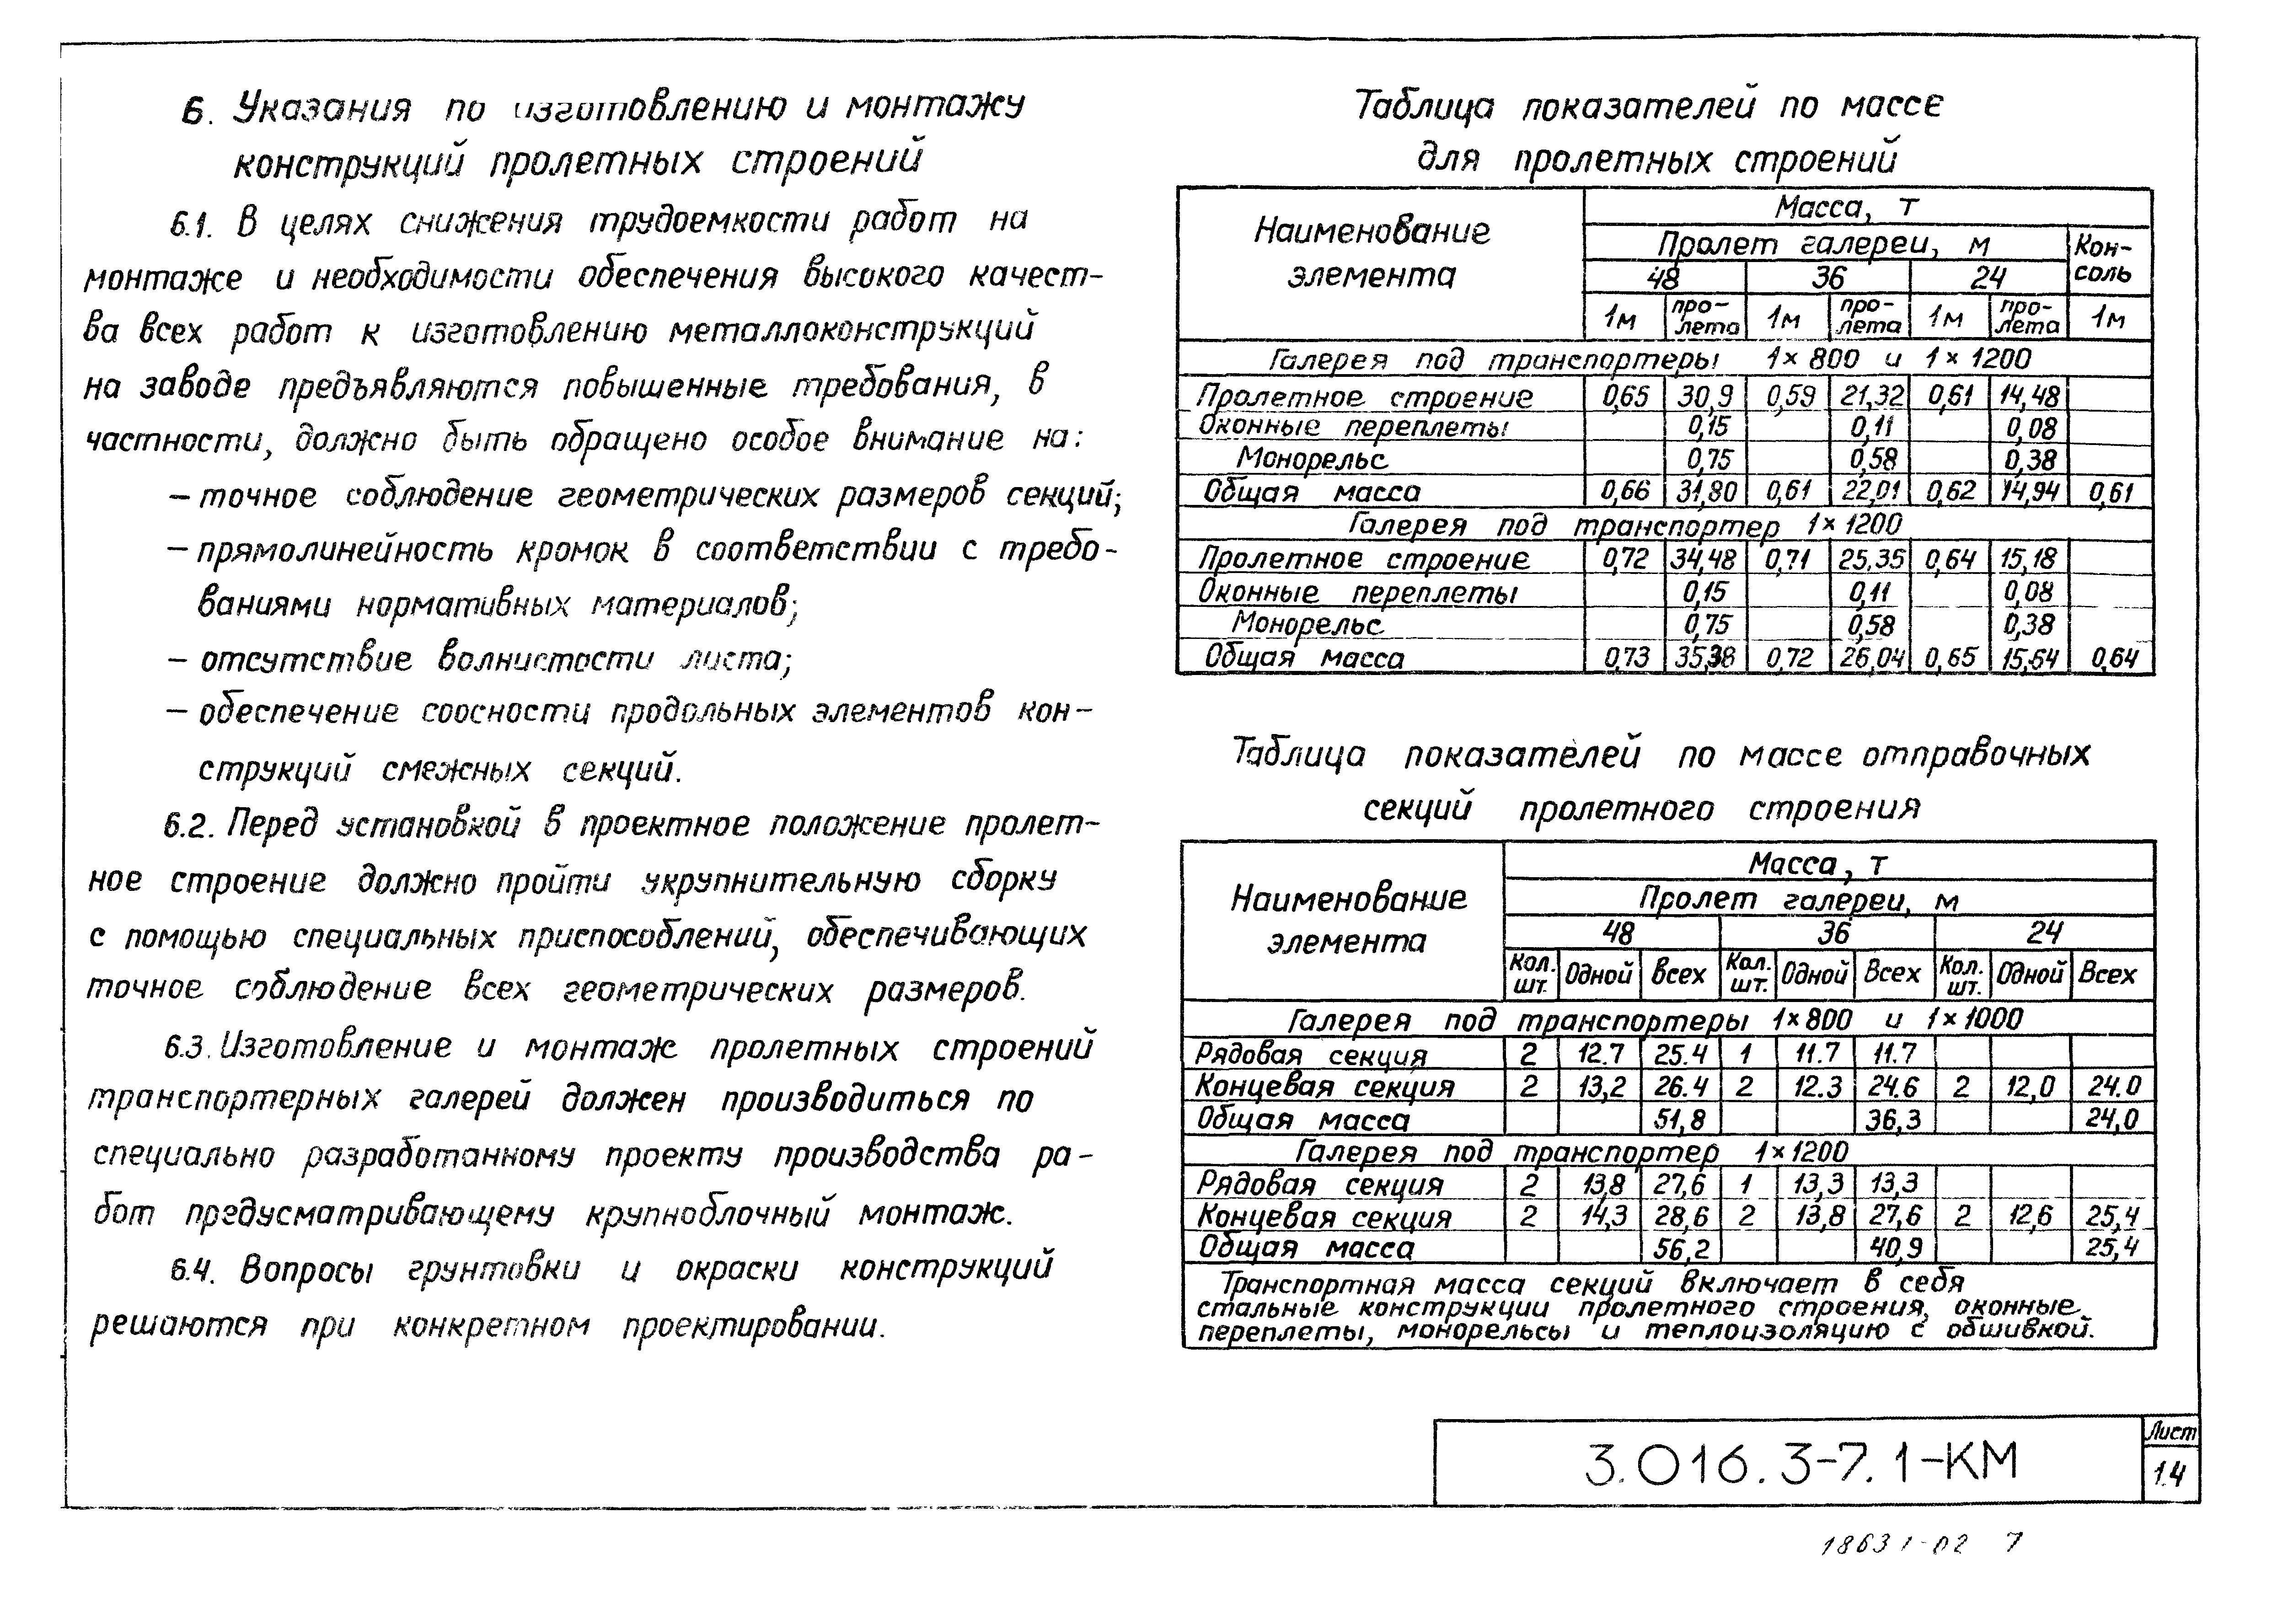 6. Указания по изготовлению и монтажу
конструкций пролетных строений
6.1. В целях снижения трудоемкости работ на
монтаже и необходимости обеспечения высокого качест-
ва всех работ к изготовлению металлоконструкций
на заводе предъявляются повышенные требования, в
частности, должно быть обращено особое внимание на:
– точное соблюдение геометрических размеров секций;
– прямолинейность кромок в соответствии с требо-
ваниями нормативных материалов;
– отсутствие волнистости листа;
– обеспечение соосности продольных элементов кон-
струкций смежных секций.
6.2. Перед установкой в проектное положение пролет-
ное строение должно пройти укрупнительную сборку
с помощью специальных приспособлений, обеспечивающих
точное соблюдение всех геометрических размеров.
6.3. Изготовление и монтаж пролетных строений
транспортерных галерей должен производиться по
специально разработанному проекту производства ра-
бот предусматривающему крупноблочный монтаж.
6.4. Вопросы грунтовки и окраски конструкций
решаются при конкретном проектировании.
Таблица показателей по массе
для пролетных строений
Наименование элемента
Масса, т
Пролет галереи, м Кон-
соль
48 36 24
1м про-лета 1м про-лета 1м про-лета 1м
Галерея под транспортеры 1×800 и 1×1200
Пролетное строение 0,65 30,9 0,59 21,32 0,61 14,48
Оконные переплеты 0,15 0,11 0,08
Монорельс 0,75 0,58 0,38
Общая масса 0,66 31,80 0,61 22,01 0,62 14,94 0,61
Галерея под транспортер 1×1200
Пролетное строение 0,72 34,48 0,71 25,35 0,64 15,18
Оконные переплеты 0,15 0,11 0,08
Монорельс 0,75 0,58 0,38
Общая масса 0,73 35,38 0,72 26,04 0,65 15,64 0,64
Таблица показателей по массе отправочных
секций пролетного строения
Наименование элемента
Масса, т
Пролет галереи, м
48 36 24
Кол. шт. Одной Всех Кол. шт. Одной Всех Кол. шт. Одной Всех
Галерея под транспортеры 1×800 и 1×1000
Рядовая секция 2 12.7 25.4 1 11.7 11.7
Концевая секция 2 13,2 26.4 2 12.3 24.6 2 12,0 24.0
Общая масса 51,8 36,3 24,0
Галерея под транспортер 1×1200
Рядовая секция 2 13,8 27,6 1 13,3 13,3
Концевая секция 2 14,3 28,6 2 13,8 27,6 2 12,6 25,4
Общая масса 56,2 40,9 25,4
Транспортная масса секций включает в себя
стальные конструкции пролетного строения, оконные
переплеты, монорельсы и теплоизоляцию с обшивкой.
3.016.3-7.1-КМ
Лист
1.4
18631-02 7